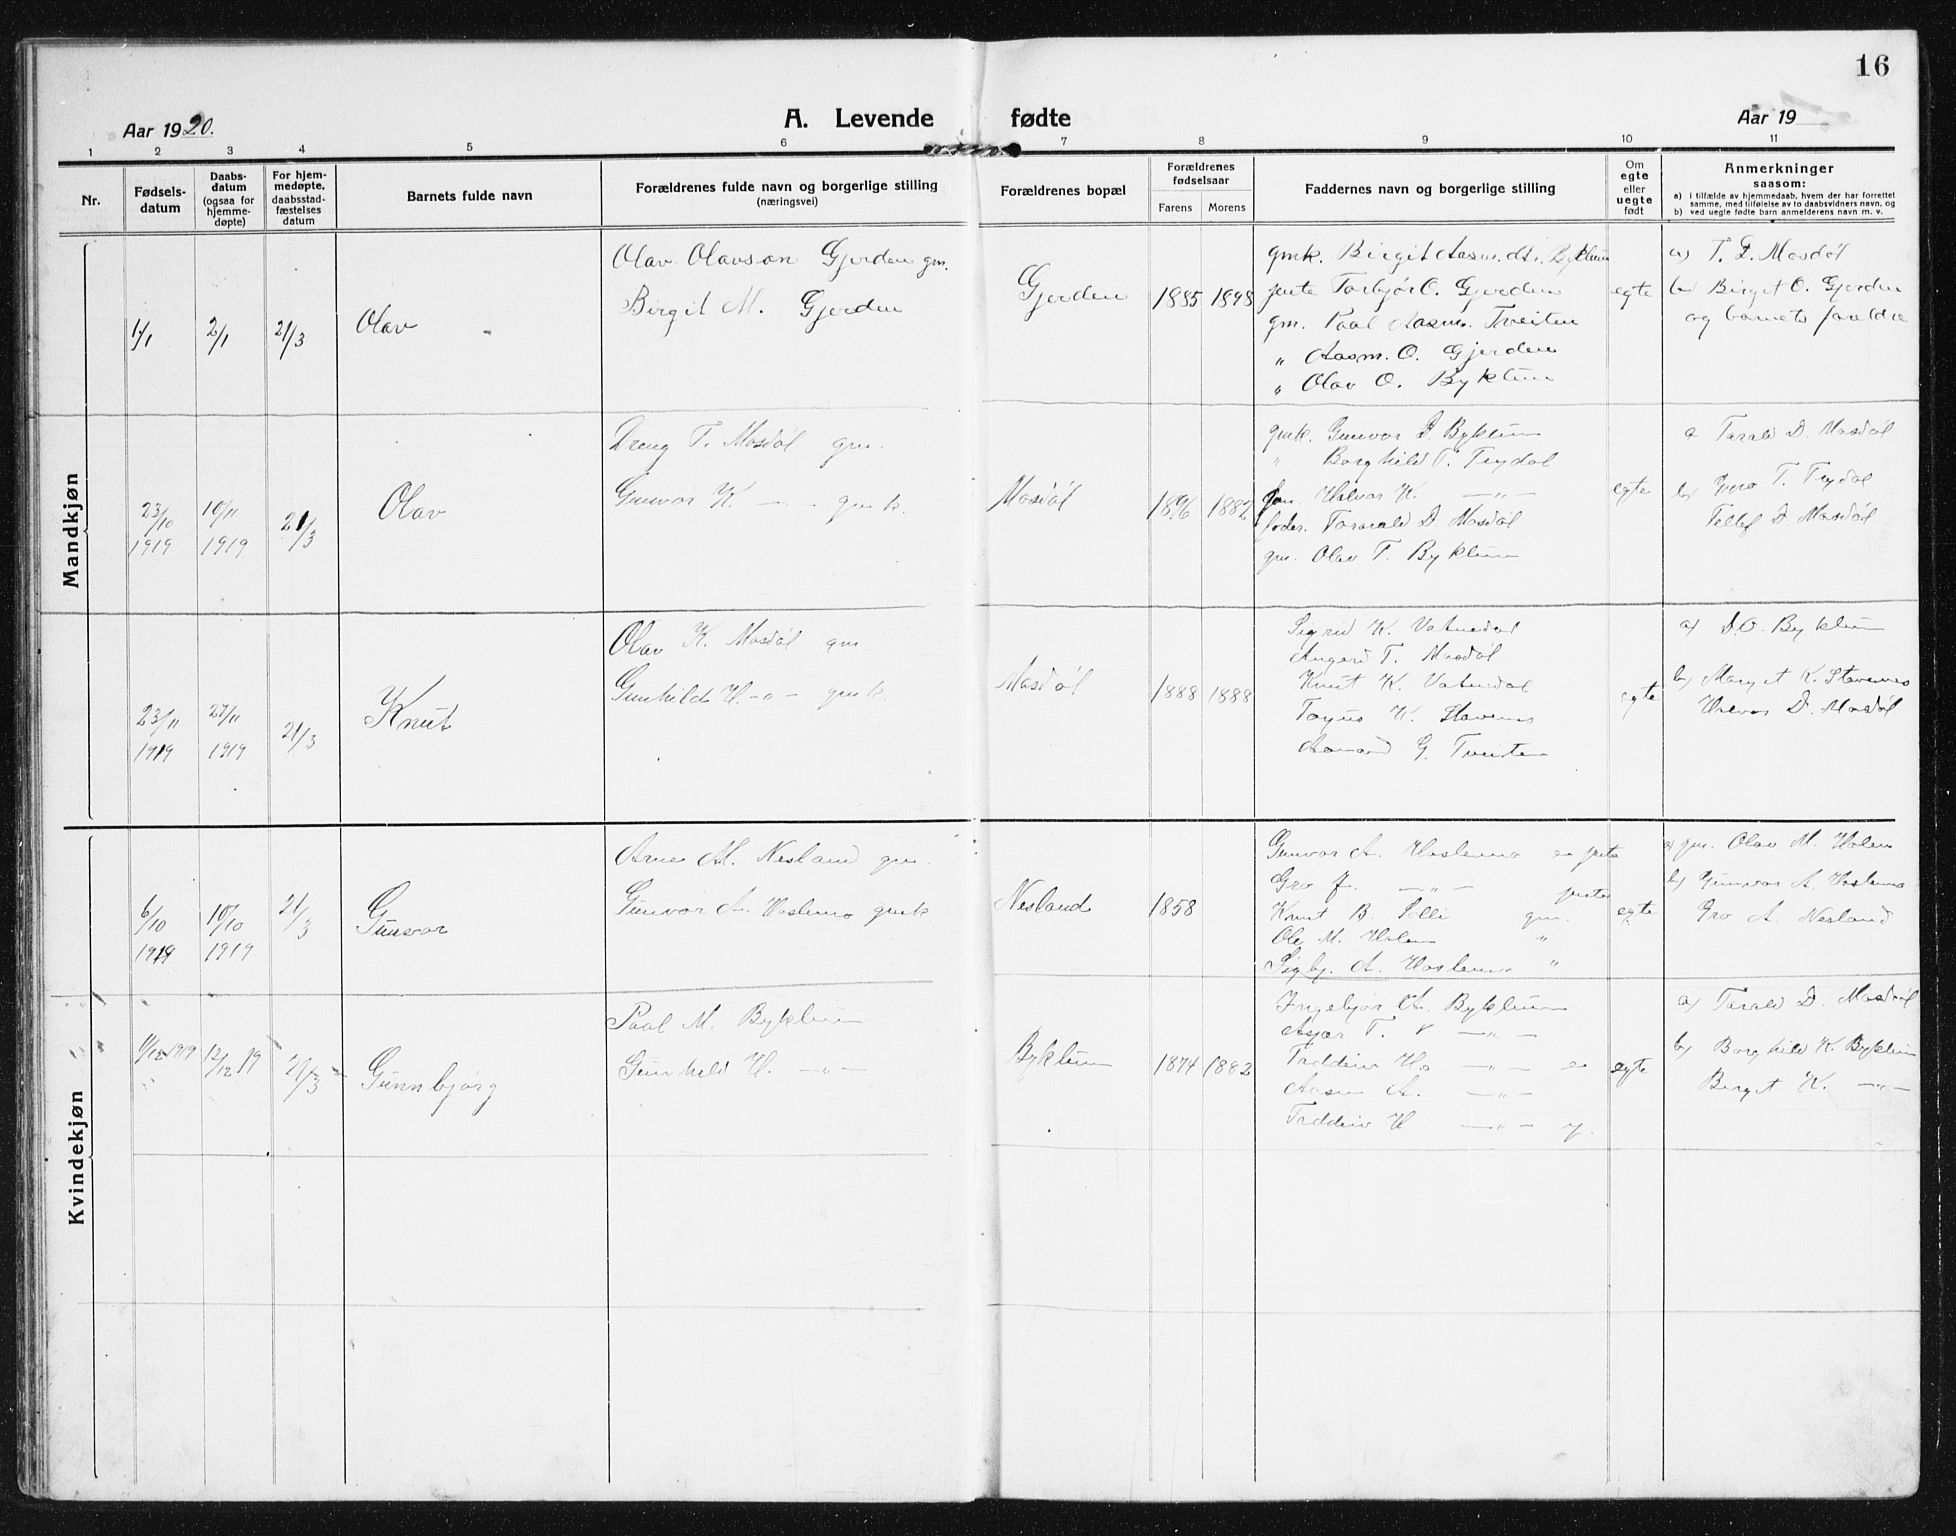 16
Aar 1920.
A. Levende fødte
Aar 19
1 2 3 4 5 6 7 8 9 10 11
Nr.
Fødsels-
datum
Daabs-
datum
(ogsaa for
hjemme-
døpte)
For hjem-
medøpte,
daabsstad-
fæstelses
datum
Barnets fulde navn
Forældrenes fulde navn og borgerlige stilling
(næringsvei)
Forældrenes bopæl
Forældrenes
fødselsaar
Farens Morens
Faddernes navn og borgerlige stilling
Om
egte
eller
uegte
født
Anmerkninger
saasom:
a) i tilfælde av hjemmedaab, hvem der har forrettet
samme, med tilføielse av to daabsvidners navn, og
b) ved uegte fødte barn anmelderens navn m. v.
Mandkjøn
1/1 2/1 21/3
Olav
Olav Olavson Gjerden gm.
Birgit M. Gjerden
Gjerden
1885 1898
gmk. Birgit Aasm.dt. Byklum
jente Torbjør O. Gjerden
gm. Paal Aasm. Tveiten
„ Aasm. O. Gjerden
„ Olav O. Byklum
egte
a) T. D. Mosdøl
b) Birget O. Gjerden
og barnets foreldre
23/10 1919
10/11 1919
21/3
Olav
Dreng T. Mosdøl gm.
Gunvor K. — „ — gmk.
Mosdøl
1896 1882
gmk. Gunvor D. Byklum
„ Borghild T. Trydal
Halvor K. — „ —
Tarald D. Mosdøl
gm. Olav T. Byklum
egte
a Tarald D. Mosdøl
b) T. Trydal
Tellef D. Mosdøl
23/11 1919
27/11 1919
21/3
Knut
Olav K. Mosdøl gm.
Gunhild H. — „ — gmk.
Mosdøl
1888 1888
Sigrid K. Vatnedal
Angerd T. Mosdøl
Knut K. Vatnedal
K. Stavenes
G. Tveiten
egte
a) D.O. Byklum
b) Marget K. Stavenes
Halvor D. Mosdøl
Kvindekjøn
6/10 1919
10/10 1919
21/3
Gunvor
Arne M. Nesland gm.
Gunvor A. Hoslemo gmk.
Nesland
1858
Gunvor A. Hoslemo e jente
Gro J. — „ — jente
Knut B. gm.
M. Holen „
A. Hoslemo „
egte
a) gm. Olav M. Holen
b) Gunvor A. Hoslemo
Gro A. Nesland
11/12 1919
12/12 19
21/3
Gunnbjørg
Paal M. Byklum
Gunhild H. — „ —
Byklum
1874 1882
Ingebjør A. Byklum
T. — „ —
H. — „ — e
Aasm A. — „ —
H — „ — y.
egte
a) Tarald D. Mosdøl
b) Borghild K. Byklum
Birget K. — „ —